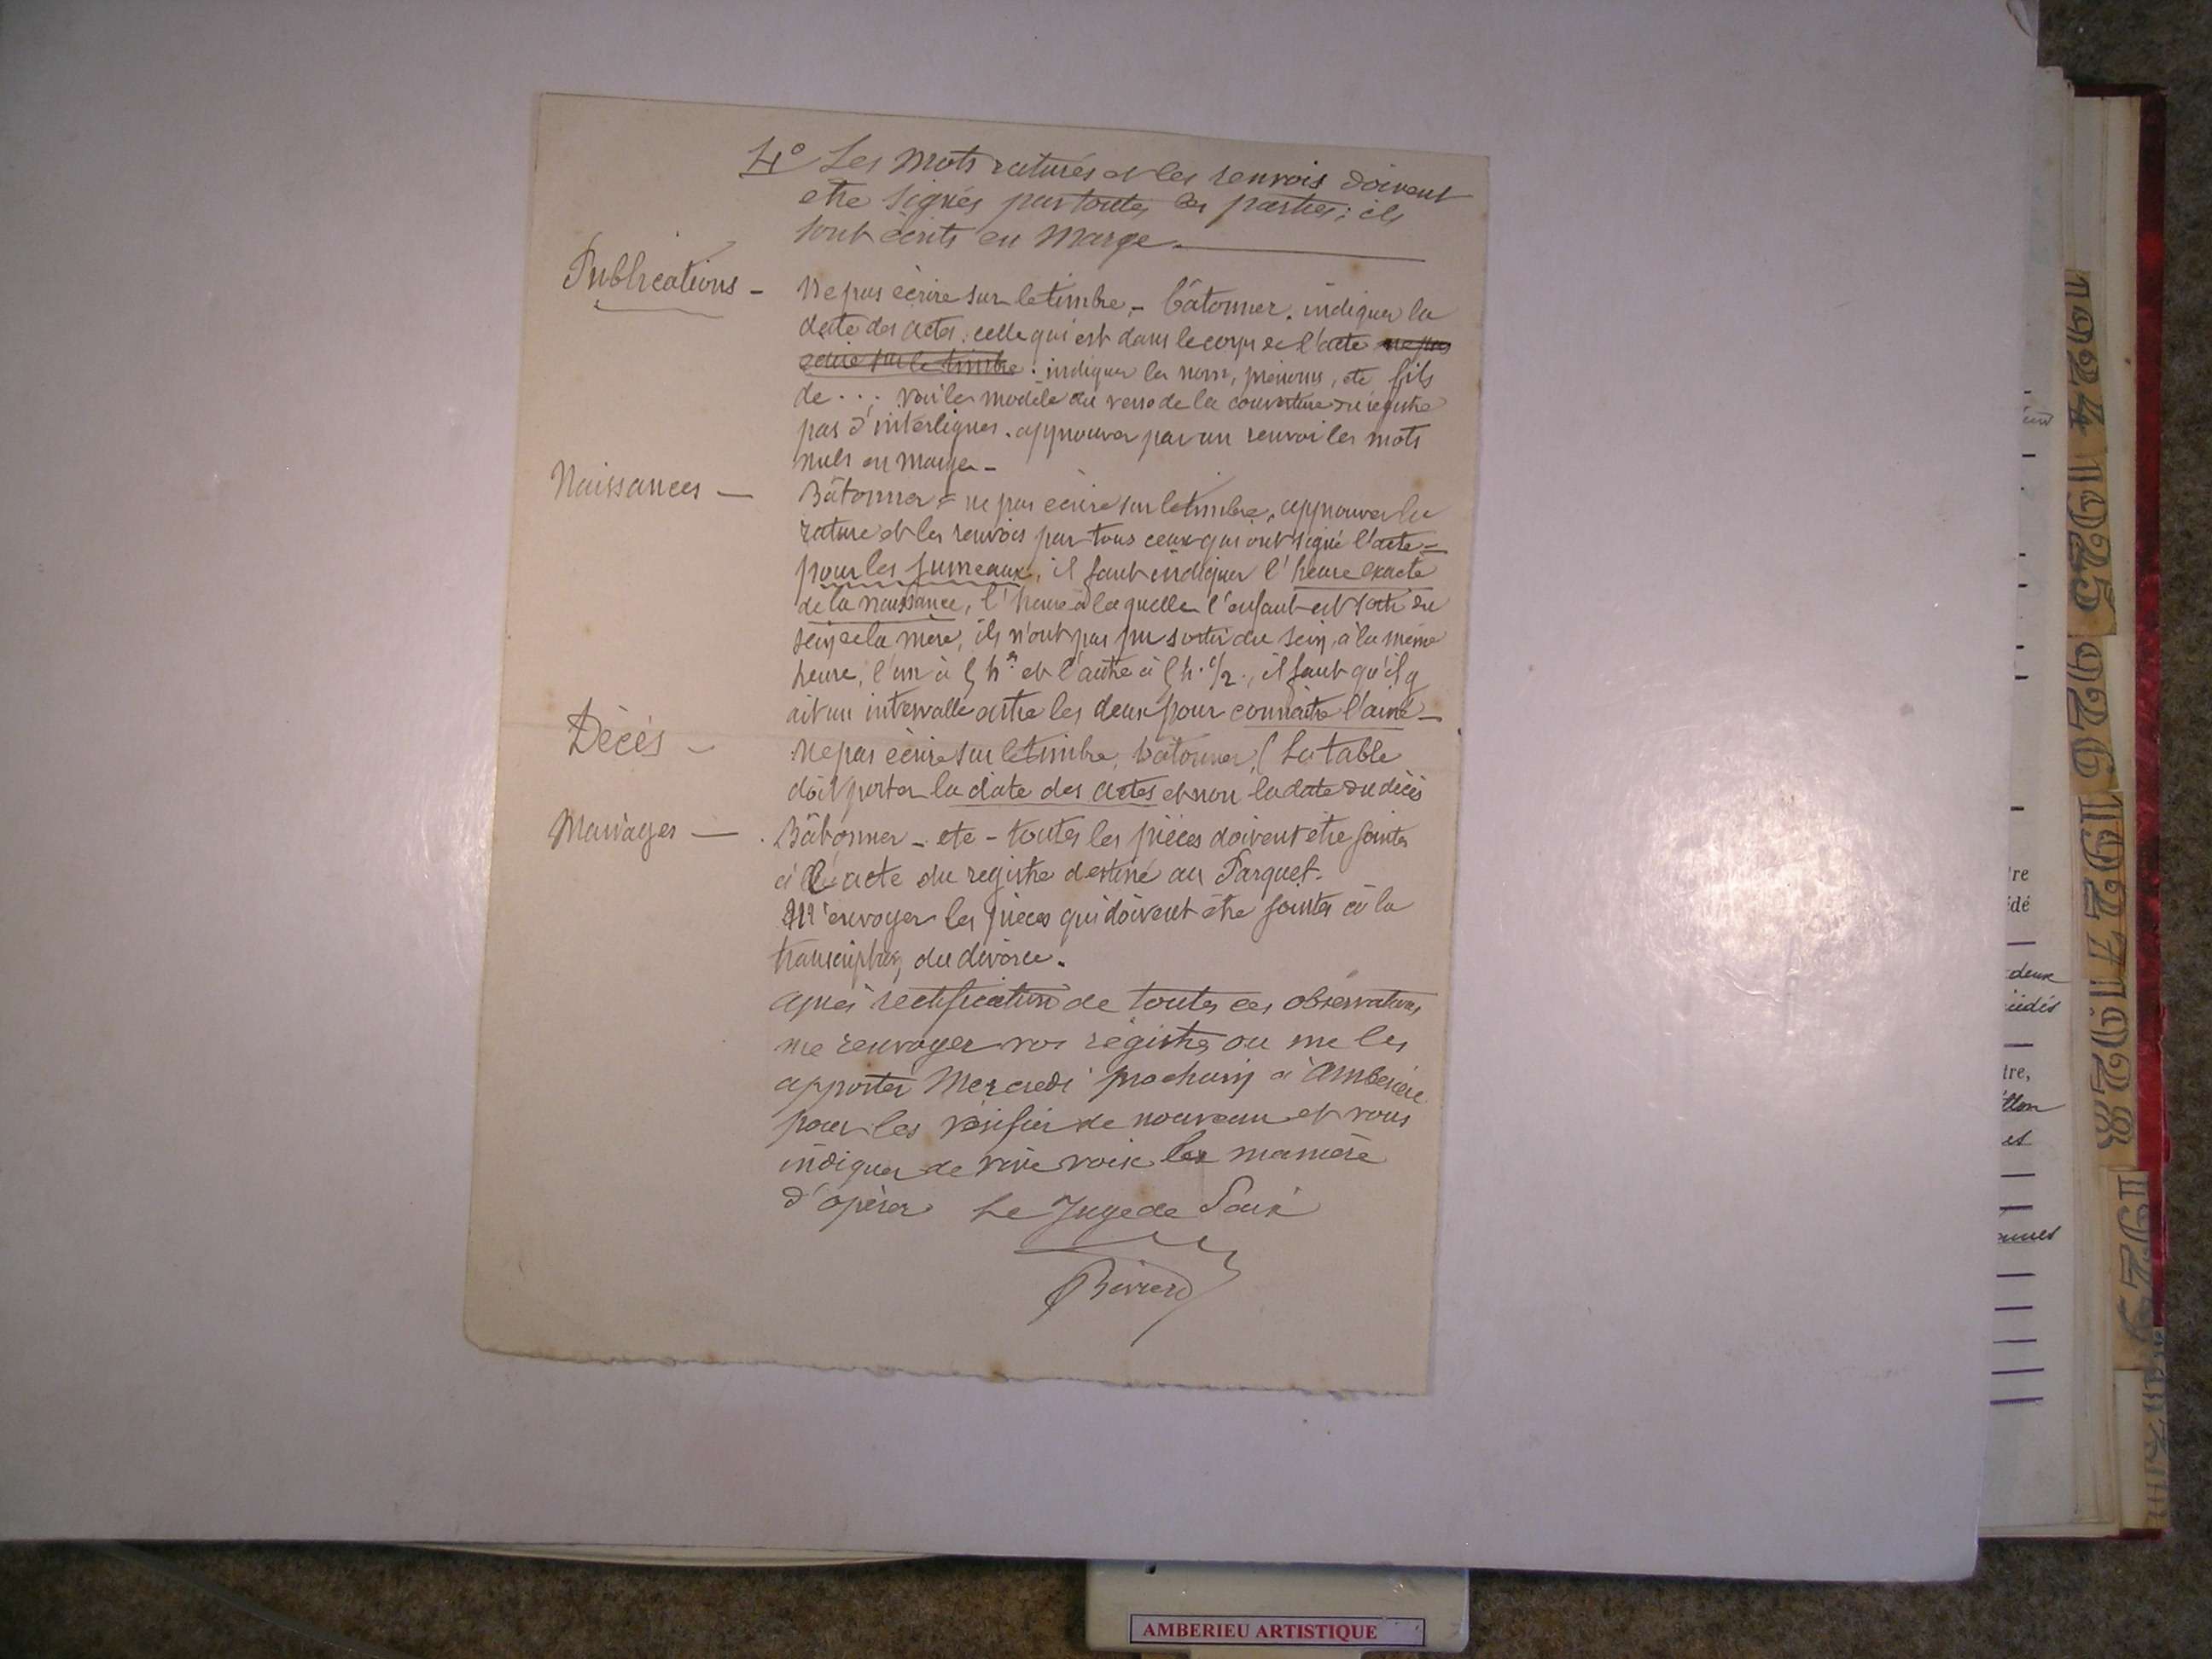 4° Les mots raturés et les renvois doivent
etre signés par toutes les parties; ils
sont écrits en marge.
Publications - Ne pas écrire sur le timbre, - bâtonner. indiquer la
date des actes: celle qui est dans le corps de l'acte ne pas
ecrire sur le timbre: indiquer les nom, prénoms, etc fils
de...; voir le modèle au verso de la couverture du registre
pas d'interlignes. approuver par un renvoi les mots
nuls en marge -
Naissances - Bâtonner = ne pas ecrire sur le timbre, approuver la
rature et les renvois par tous ceux qui ont signé l'acte =
pour les jumeaux, il faut indiquer l'heure exacte
de la naissance, l'heure à laquelle l'enfant est sorti du
sein de la mère, ils n'ont pas pu sortir du sein à la même
heure, l'un à 5 h.es et l'autre à 5 h. 1/2., il faut qu'il y
ait un intervalle entre les deux pour connaitre l'ainé -
Décès - Ne pas écrire sur le timbre, bâtonner, La table
doit porter la date des actes et non la date du décès
Mariages - Bâtonner - etc - toutes les pièces doivent etre jointes
à l'acte du registre destiné au Parquet.
M'envoyer les pièces qui doivent être jointes à la
transcription du divorce.
après rectification de toutes ces observations
me renvoyer vos registres ou me les
apporter Mercredi prochain à Ambérieu
pour les vérifier de nouveau et vous
indiquer de vive voix la manière
d'opérer Le Juge de Paix
1924
1925
1926
1927
1928
1929
re
dé
deux
cédés
tre,
et
AMBERIEU ARTISTIQUE